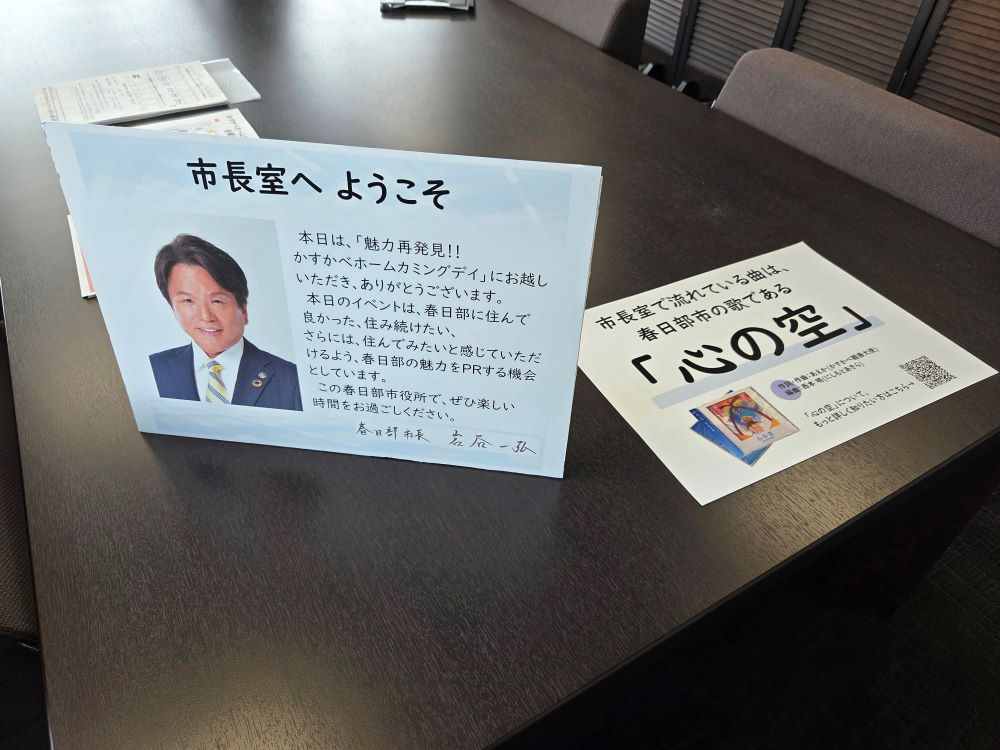 市長室へ ようこそ
本日は、「魅力再発見!!
かすかべホームカミングデイ」にお越し
いただき、ありがとうございます。
本日のイベントは、春日部に住んで
良かった、住み続けたい、
さらには、住んでみたいと感じていただ
けるよう、春日部の魅力をPRする機会
としています。
この春日部市役所で、ぜひ楽しい
時間をお過ごしください。
春日部市長 岩谷 一弘
市長室で流れている曲は、
春日部市の歌である
「心の空」
作詞・作曲:あえか(かすかべ親善大使)
編曲:西本 明(にしもとあきら)
「心の空」について、
もっと詳しく知りたい方はこちら→
心の空